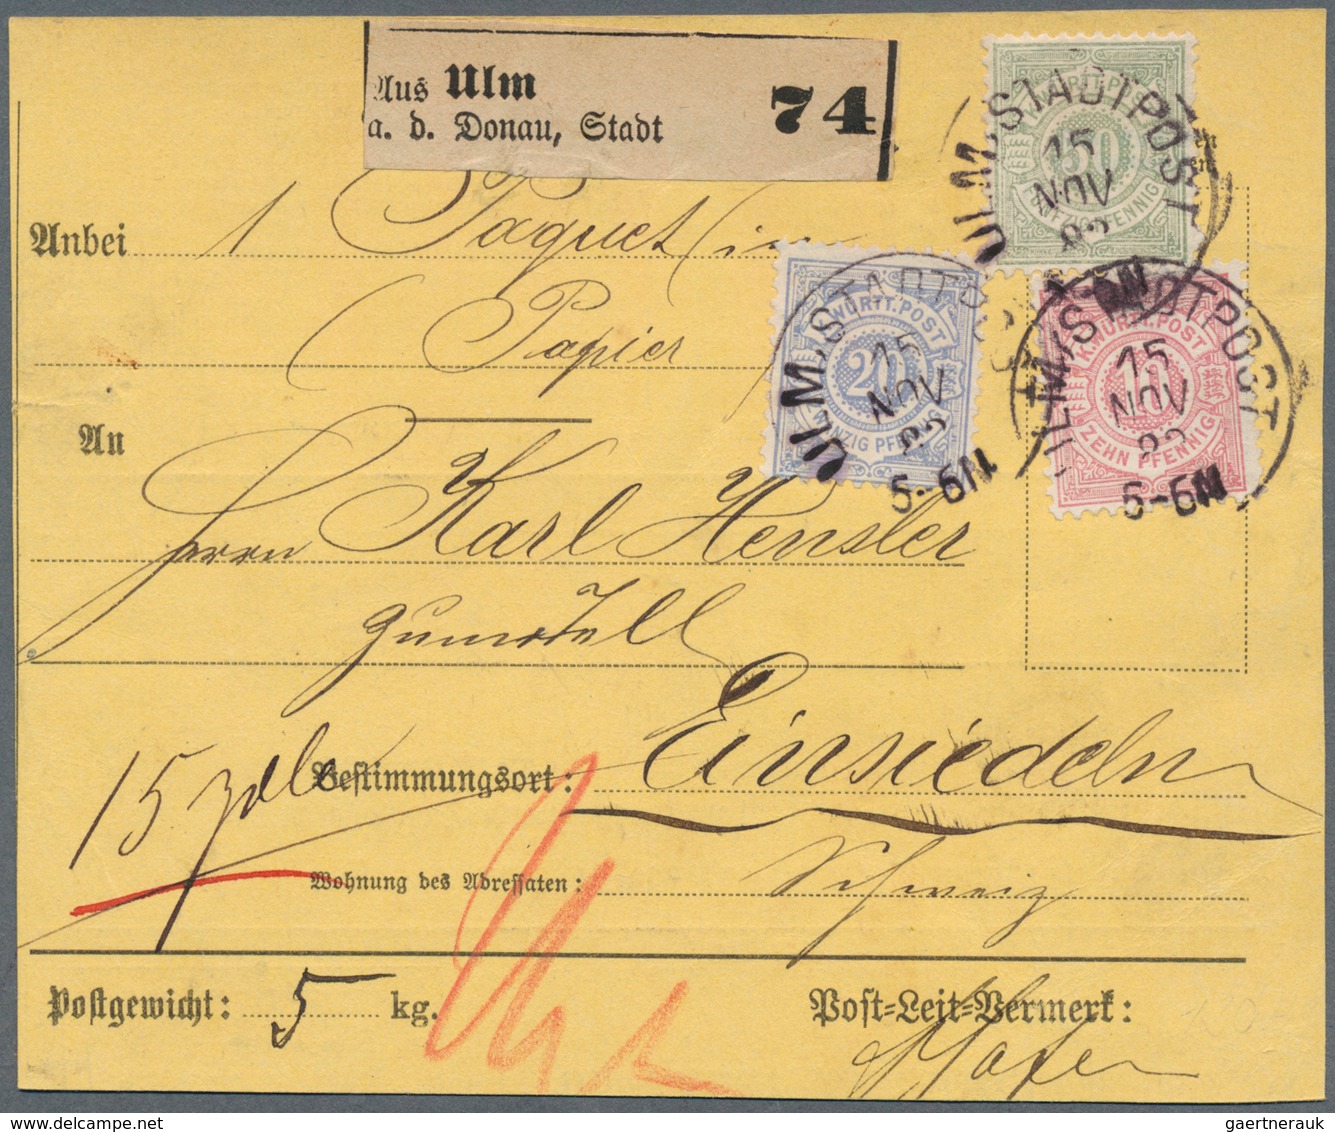 Aus Ulm
a. d. Donau, Stadt 74
K.WÜRTT.POST
50
FUNFZIG PFENNIG
ULM/STADTPOST
15
NOV
82
5-6N
Anbei 1 Paquet (in
Papier)
K.WÜRTT.POST
20
ZWANZIG PFENNIG
ULM/STADTPOST
15
NOV
82
5-6N
K.WÜRTT.POST
10
ZEHN PFENNIG
ULM/STADTPOST
15
NOV
82
5-6N
An
Herrn Karl Hensler
Bestimmungsort: Einsiedeln
15
Wohnung des Adressaten: Schweiz
Postgewicht: 5 kg.
Post-Leit-Vermerk:
gaertnerauk